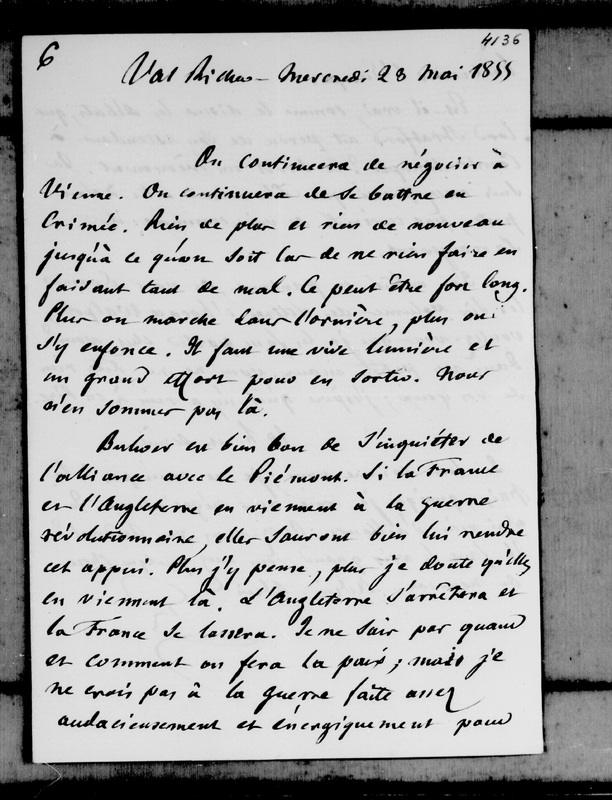 6
4136
Val Richer - Mercredi 28 mai 1855
On continuera de négocier à
Vienne. On continuera de se battre en
Crimée. Rien de plus et rien de nouveau
jusqu'à ce qu'on soit las de ne rien faire en
faisant tant de mal. Ce peut être fort long.
Plus on marche dans l'ornière, plus on
s'y enfonce. Il faut une vive lumière et
un grand effort pour en sortir. Nous
n'en sommes pas là.
est bien bon de s'inquiéter de
l'alliance avec le Piémont. Si la France
et l'Angleterre en viennent à la guerre
révolutionnaire, elles sauront bien lui rendre
cet appui. Plus j'y pense, plus je doute qu'elles
en viennent là. L'Angleterre s'arrêtera et
la France se lassera. Je ne sais pas quand
et comment on fera la paix ; mais je
ne crois pas à la guerre faite assez
audacieusement et énergiquement pour